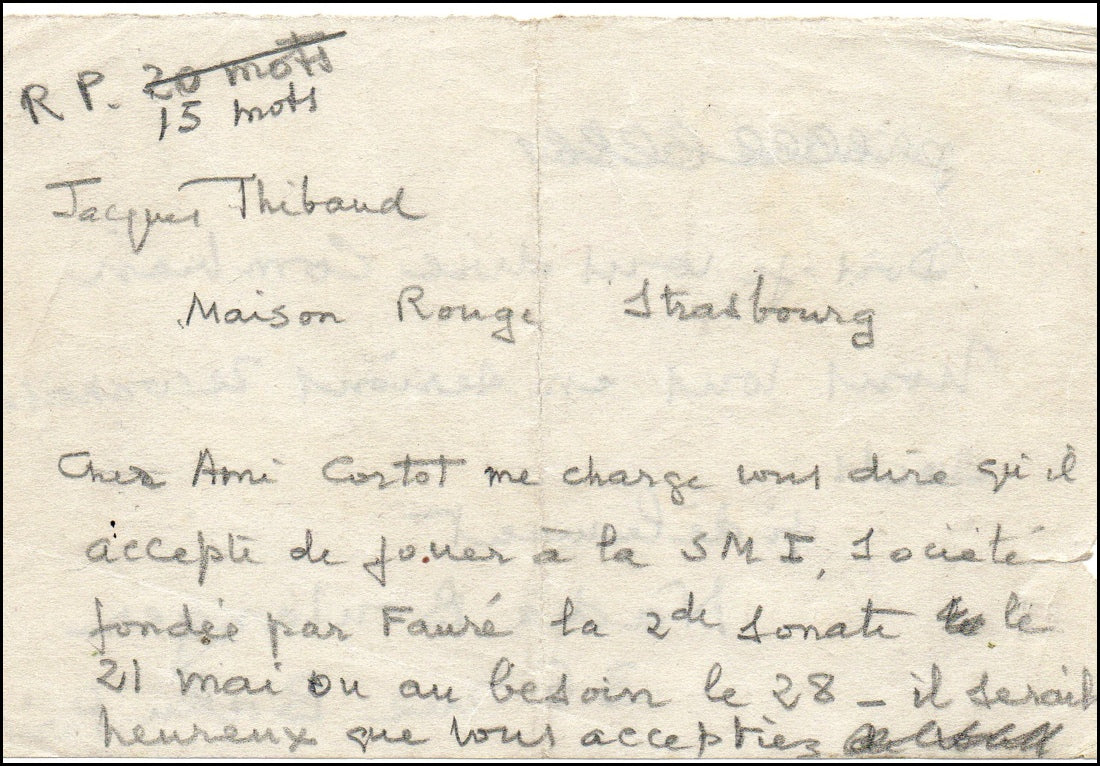 R P. 20 mots
15 mots
Jacques Thibaud
Maison Rouge Strasbourg
Cher Ami Cortot me charge vous dire qu'il
accepte de jouer à la SMI, Société
fondée par Fauré la 2de Sonate le
21 mai ou au besoin le 28 _ il serait
heureux que vous acceptiez